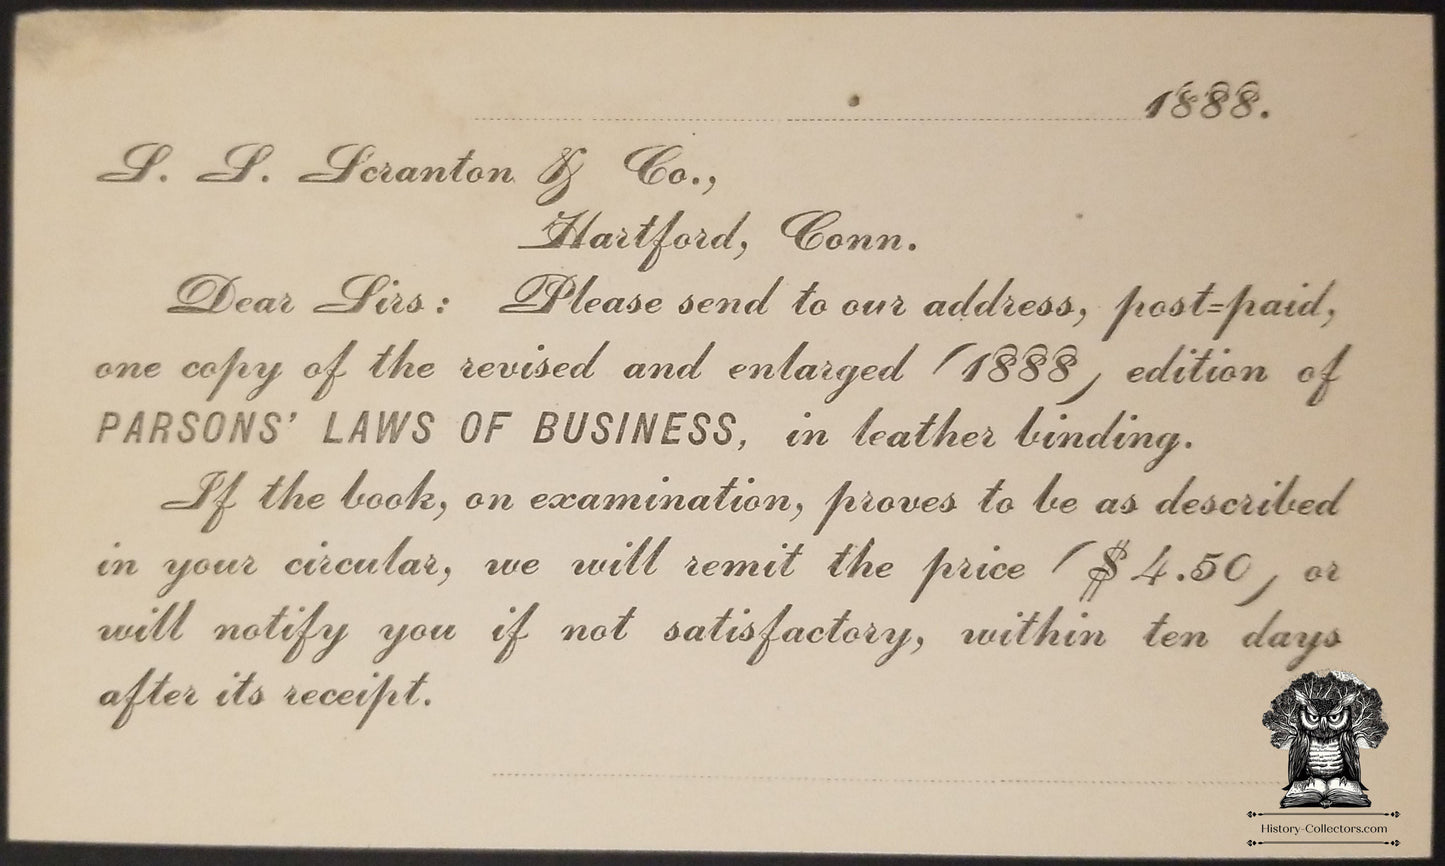 1888.
S. S. Scranton & Co.,
Hartford, Conn.
Dear Sirs: Please send to our address, post=paid,
one copy of the revised and enlarged (1888) edition of
PARSONS' LAWS OF BUSINESS, in leather binding.
If the book, on examination, proves to be as described
in your circular, we will remit the price ($4.50) or
will notify you if not satisfactory, within ten days
after its receipt.
History-Collectors.com